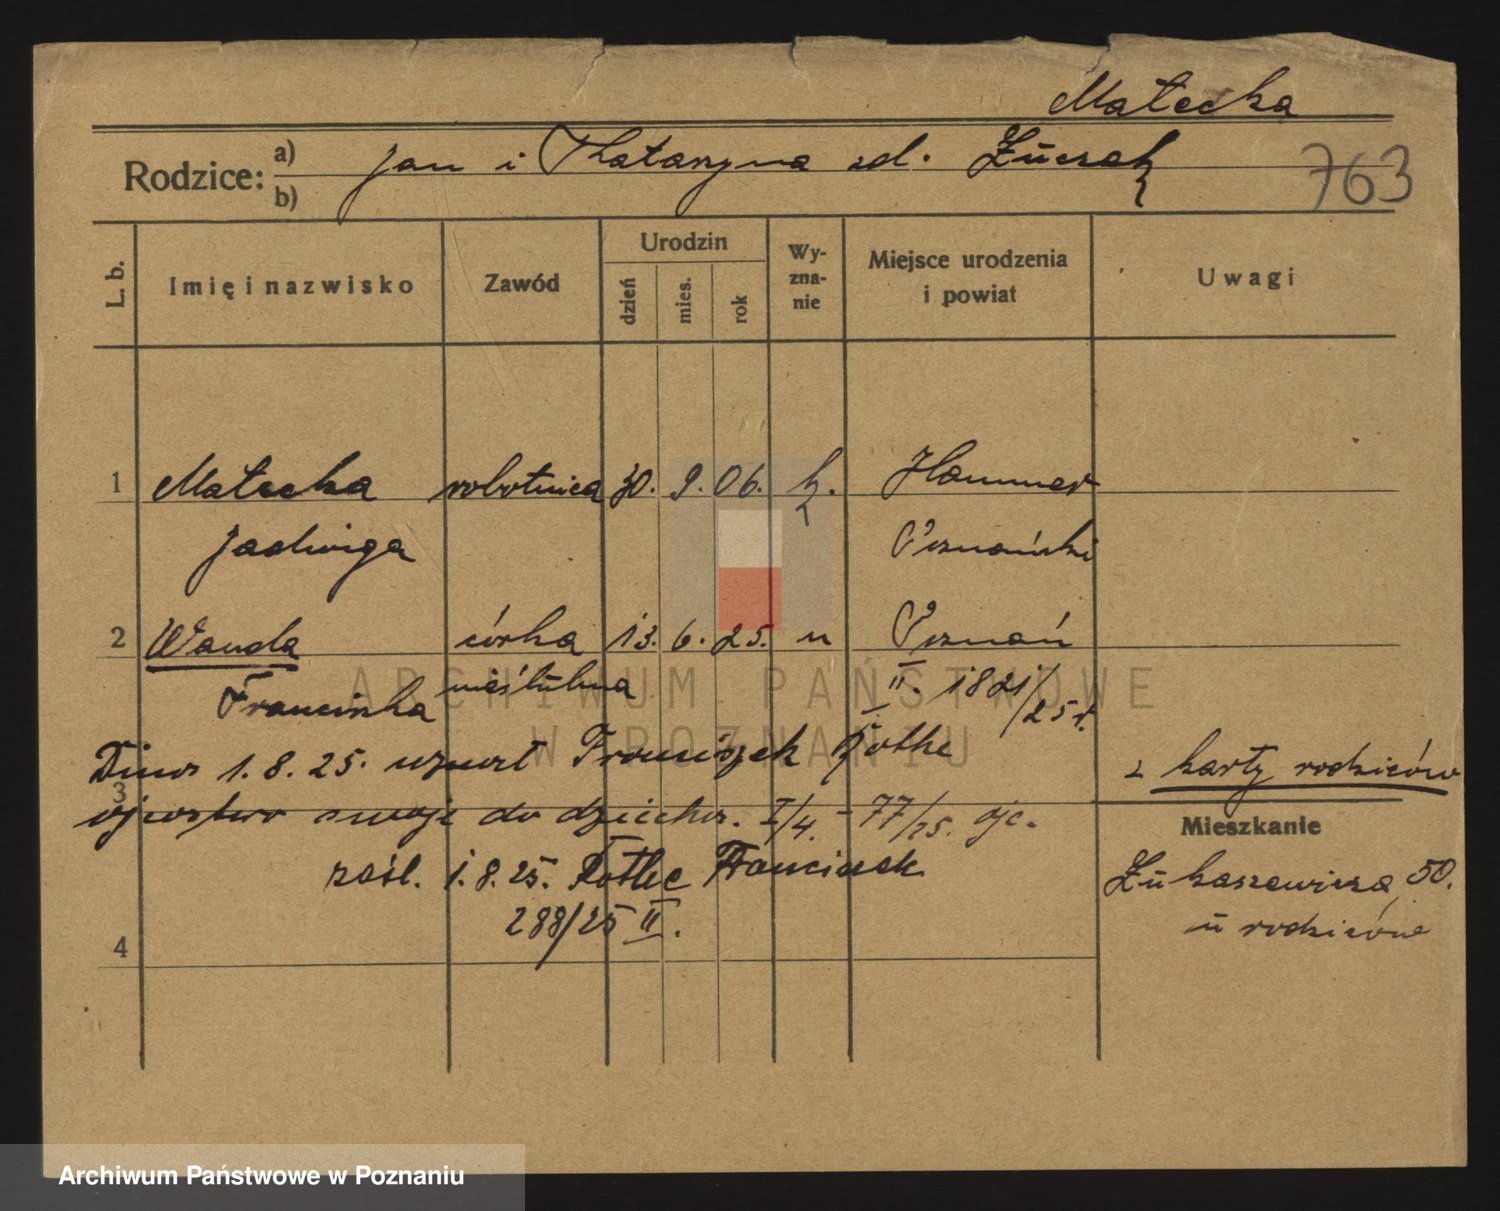 Małecka
Rodzice: a) Jan i Katarzyna zd. Łuczak
b)
763
L. b. Imię i nazwisko Zawód Urodzin dzień mies. rok Wy-zna-nie Miejsce urodzenia i powiat Uwagi
1 Małecka robotnica 30. 9. 06. k. Hammer
Jadwiga Poznański
2 Wanda córka 13. 6. 25. u Poznań
Franciszka nieślubna II. 1821/25 r.
Dnia 1.8.25. uznał Franciszek Kothe
z karty rodziców
3
ojcostwo swoje do dziecka. I/4. - 77/25. ojc.
Mieszkanie
zaśl. 1.8.25. Kothe Franciszek
Łukaszewicza 50.
288/25 II.
u rodziców
4
ARCHIWUM PAŃSTWOWE
W POZNANIU
Archiwum Państwowe w Poznaniu